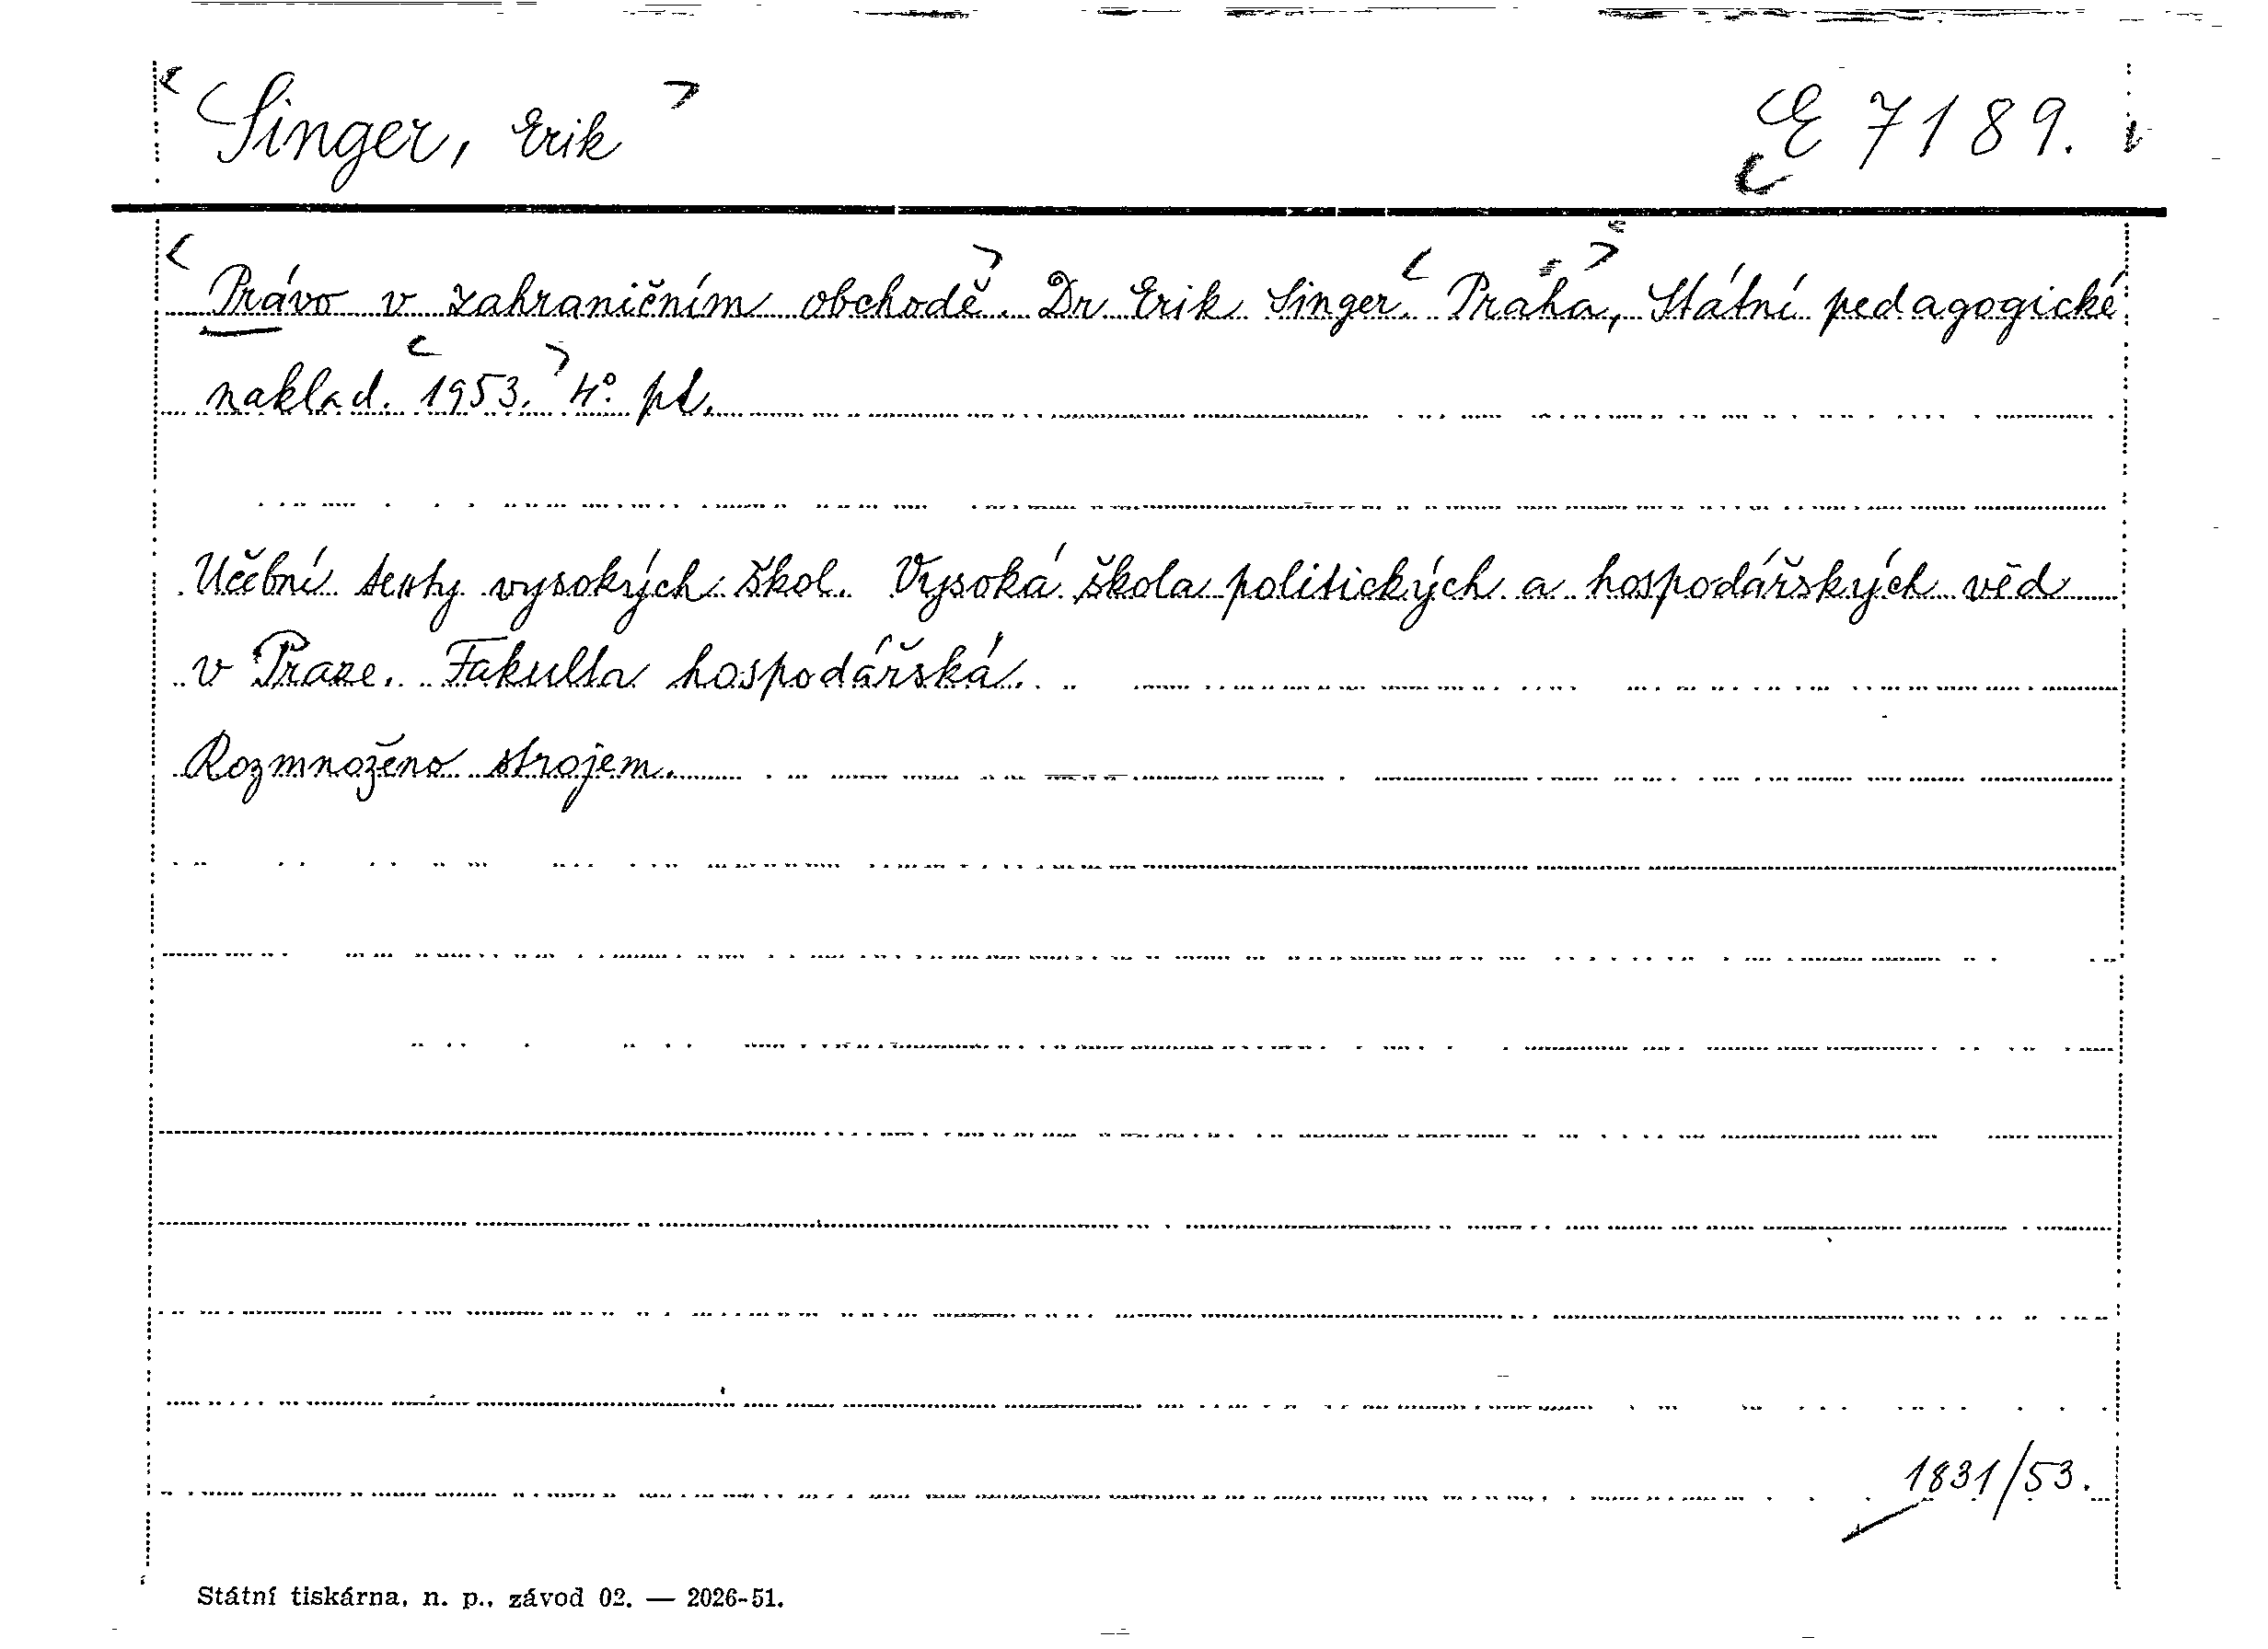 Singer, Erik
E 7189.
Právo v zahraničním obchodě. Dr Erik Singer. Praha, Státní pedagogické
naklad. 1953. 4° pt.
Učební texty vysokých škol. Vysoká škola politických a hospodářských věd
v Praze. Fakulta hospodářská.
Rozmnoženo strojem.
1831/53.
Státní tiskárna, n. p., závod 02. — 2026-51.